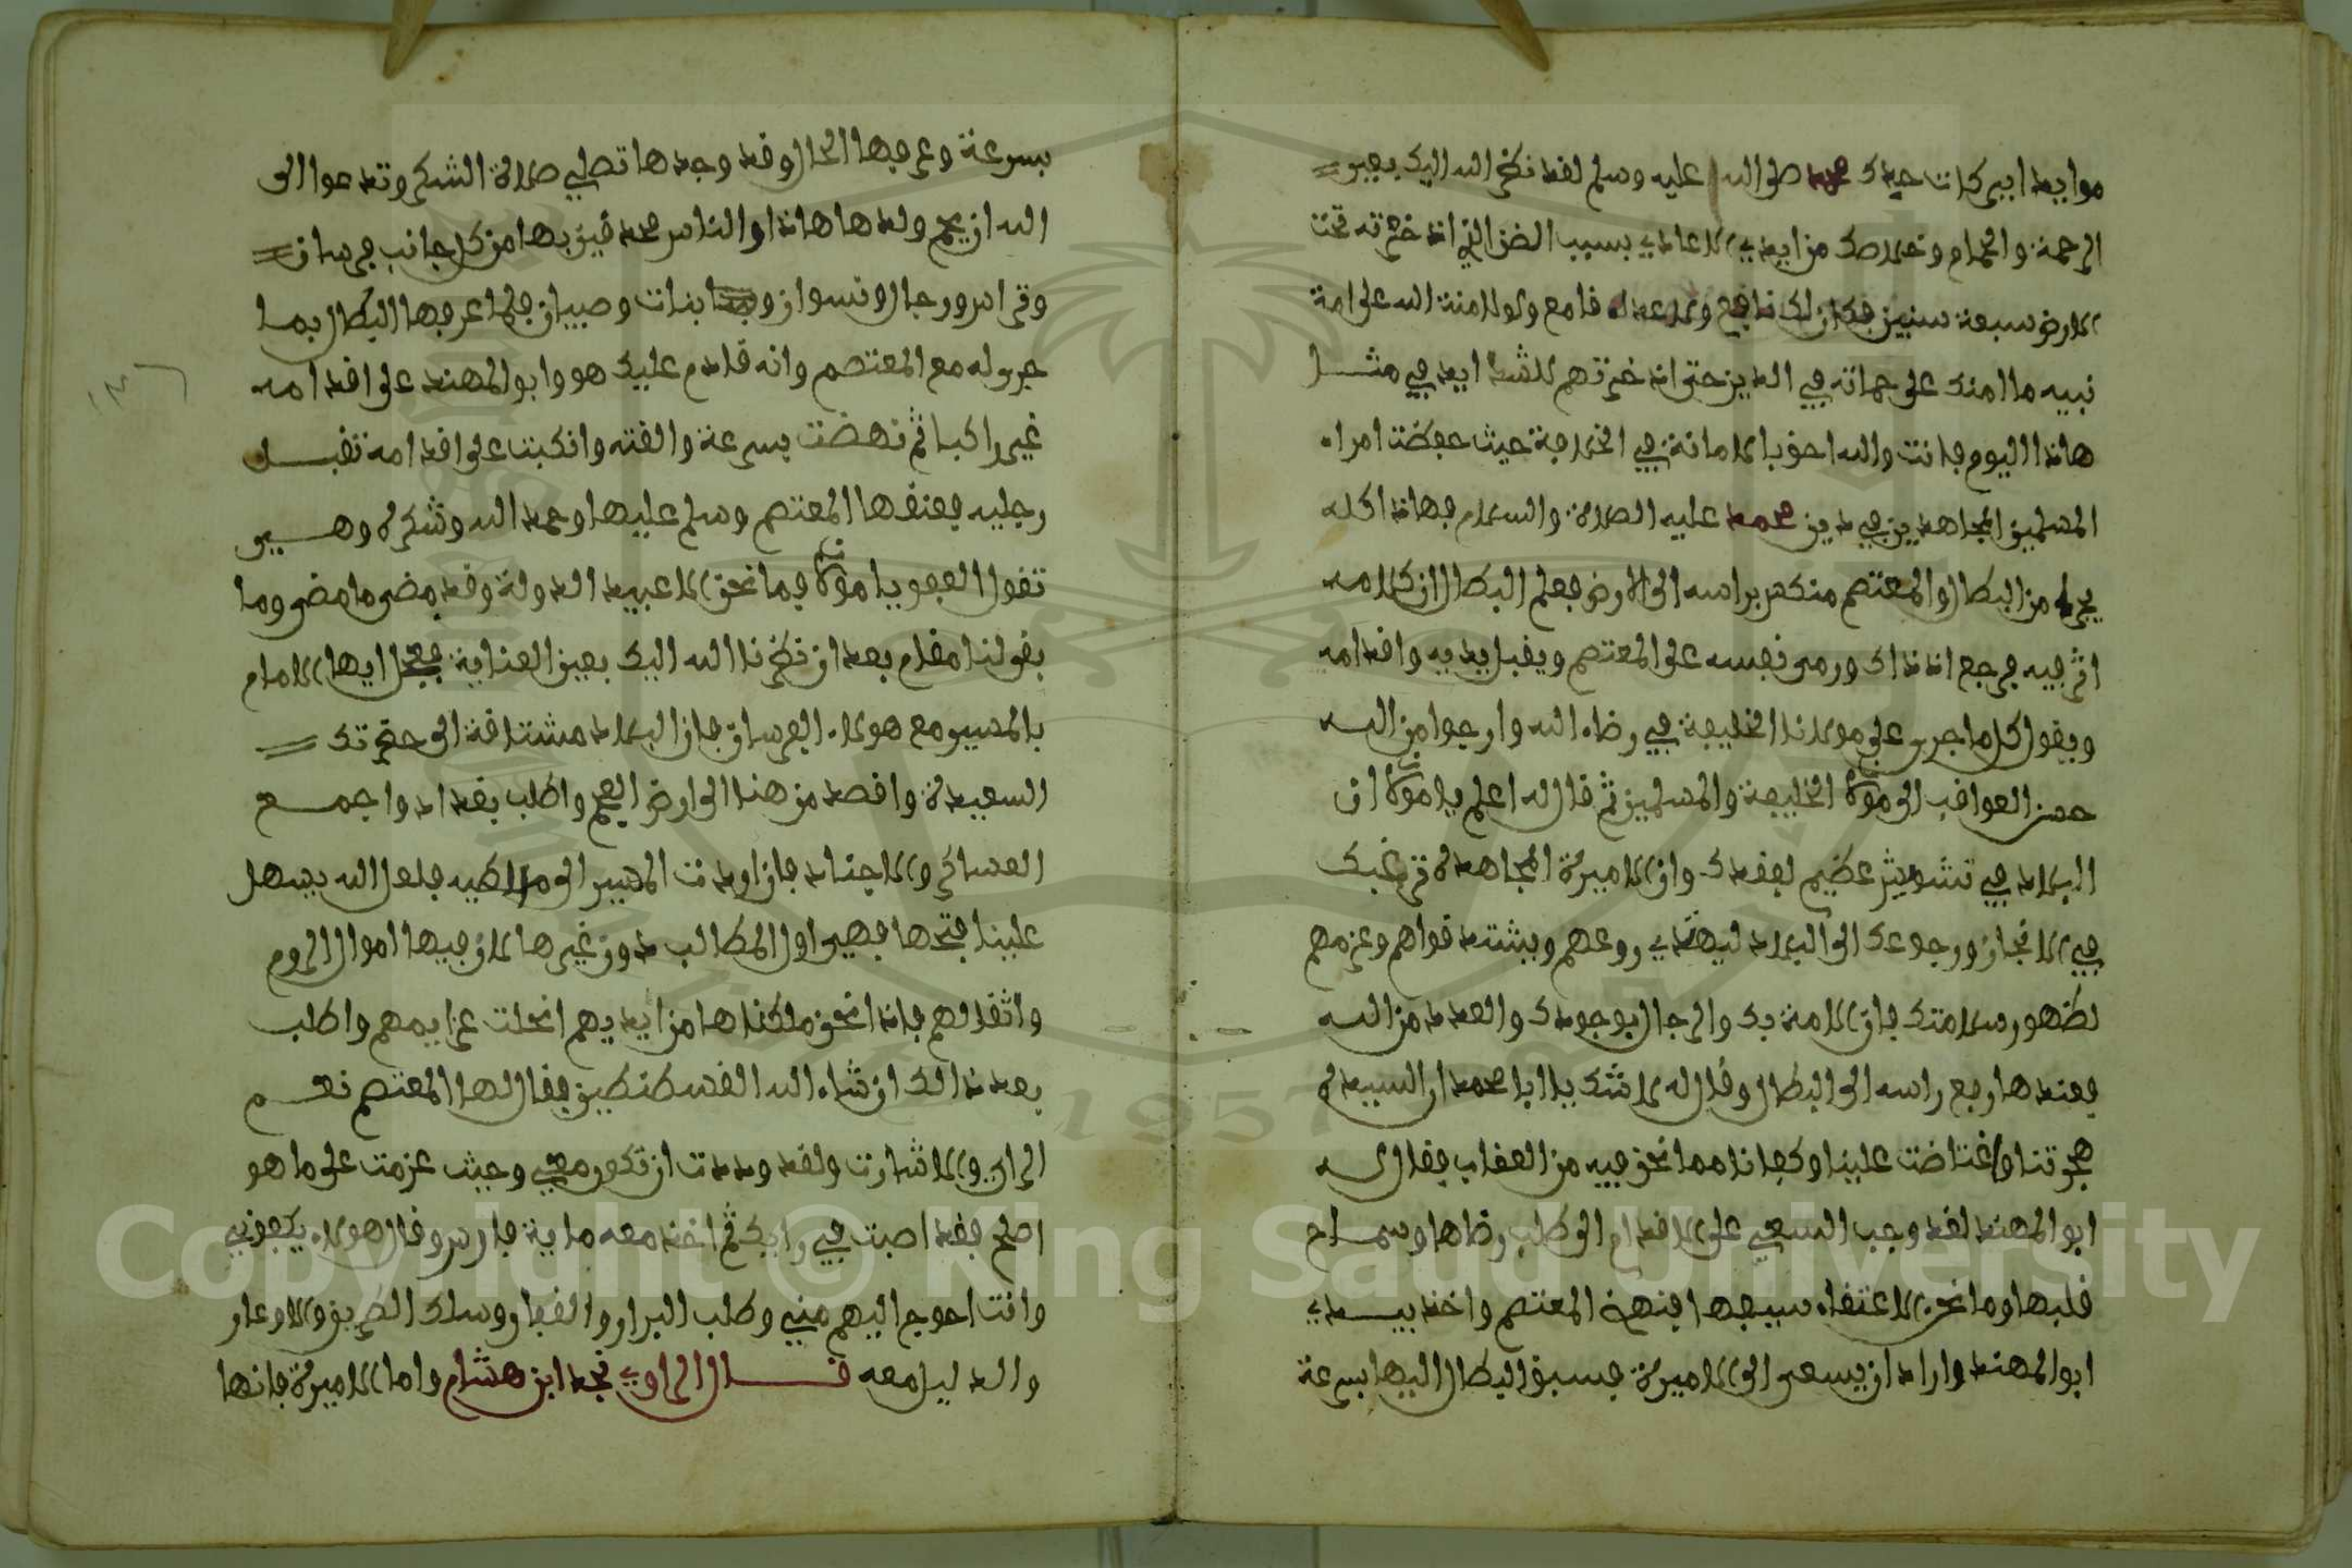 موايد ابركات جدك محمد صلى الله عليه وسلم لقد نظر الله اليك بعين
الرحمة والحرام وخلاصك من ايدي الاعادي بسبب الفرس الذي اذخرته تحت
الارض سبعة سنين فكان لك نافع ولاعداك قامع ولولا منة الله على امة
نبيه ما امنك على حماته في الدين حتى اذخرتهم للشدايد في مثل
هاذا اليوم فانت والله احق بالامانة في الخلافة حيث حفظت امراء
المسلمين المجاهدين في دين محمد عليه الصلاة والسلام فهاذا كله
يجري من البطال والمعتصم منكس براسه الى الارض فعلم البطال ان كلامه
اثر فيه فرجع اذ ذاك ورمى نفسه على المعتصم ويقبل يديه واقدامه
ويقول كل ما جرى على مولانا الخليفة في رضاء الله وارجوا من الله
حسن العواقب الى مولانا الخليفة والمسلمين ثم قال له اعلم يا مولانا ان
البلاد في تشويش عظيم لفقدك وان الاميرة المجاهدة ترغبك
في الانجاز ورجوعك الى البلاد ليهتدي روعهم ويشتد قواهم وعزمهم
لظهور سلامتك فان الامة بك والرجال بوجودك والمدد من الله
فعندها رفع راسه الى البطال وقال له لا شك يا ابا محمد ان السيدة
هجرتنا واغتاضت علينا وكفانا مما نحن فيه من العقاب فقال له
ابو المهند لقد وجب السعي على الاقدام الى طلب رضاها وسماح
قلبها وما نحن الا عتقاء سيفها فنهض المعتصم واخذ بيد
ابو المهند واراد ان يسعى الى الاميرة فسبق البطال اليها بسرعة
بسرعة وعرفها الحال وقد وجدها تصلي صلاة الشكر وتدعوا الى
الله ان يرحم ولدها هاذا والناس محدقين بها من كل جانب فرسان
وقراس ورجال ونسوان وبنات وصبيان فلما عرفها البطال بما
جرى له مع المعتصم وانه قادم عليك هو وابو المهند على اقدامه
غير راكبا ثم نهضت بسرعة والقته وانكبت على اقدامه تقبل
رجليه فعنفها المعتصم وسلم عليها وحمد الله وشكره وهي
تقول العفو يا مولانا فما نحن الا عبيد الدولة وقد مضى ما مضى وما
بقي لنا مقام بعد ان نظرنا الله اليك بعين العناية فعجل ايها الامام
بالمسير مع هولاء الفرسان فان البلاد مشتاقة الى حضرتك
السعيدة واقصد من هنا الى ارض العجم واطلب بغداد واجمع
العساكر والاجناد فان اردت المسير الى ملطيه فلعل الله يسهل
علينا فتحها فهي اول المطالب دون غيرها لان فيها اموال الروم
واثقالهم فاذا نحن ملكناها من ايديهم انحلت عزايمهم واطلب
بعد ذالك ان شاء الله القسطنطين فقال لها المعتصم نعم
الراي والاشارت ولقد وددت ان تكون معي وحيث عزمت على ما هو
اصلح فقد اصبت في رايك ثم اخذ معه ماية فارس وقال هولاء يكفوني
وانت احوج اليهم مني وطلب البراري والقفار وسلك الطريق والاوعار
والدليل معه قال الراوي نجد ابن هشام واما الاميرة فانها